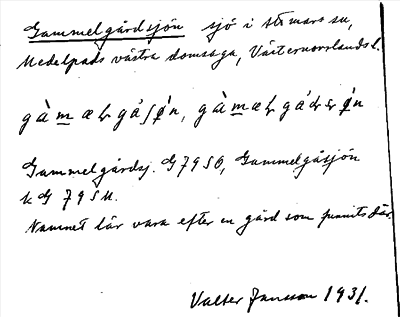 Gammelgårdsjön sjö i Stömars sn,
Medelpads västra domsaga, Västernorrlands l.
gàmæḷgáʃǿn,
Gammelgårdsj. G 79 SO, Gammelgåsjön
k G 79 SU.
Namnet lär vara efter en gård som funnits där.
Valter Jansson 1931.